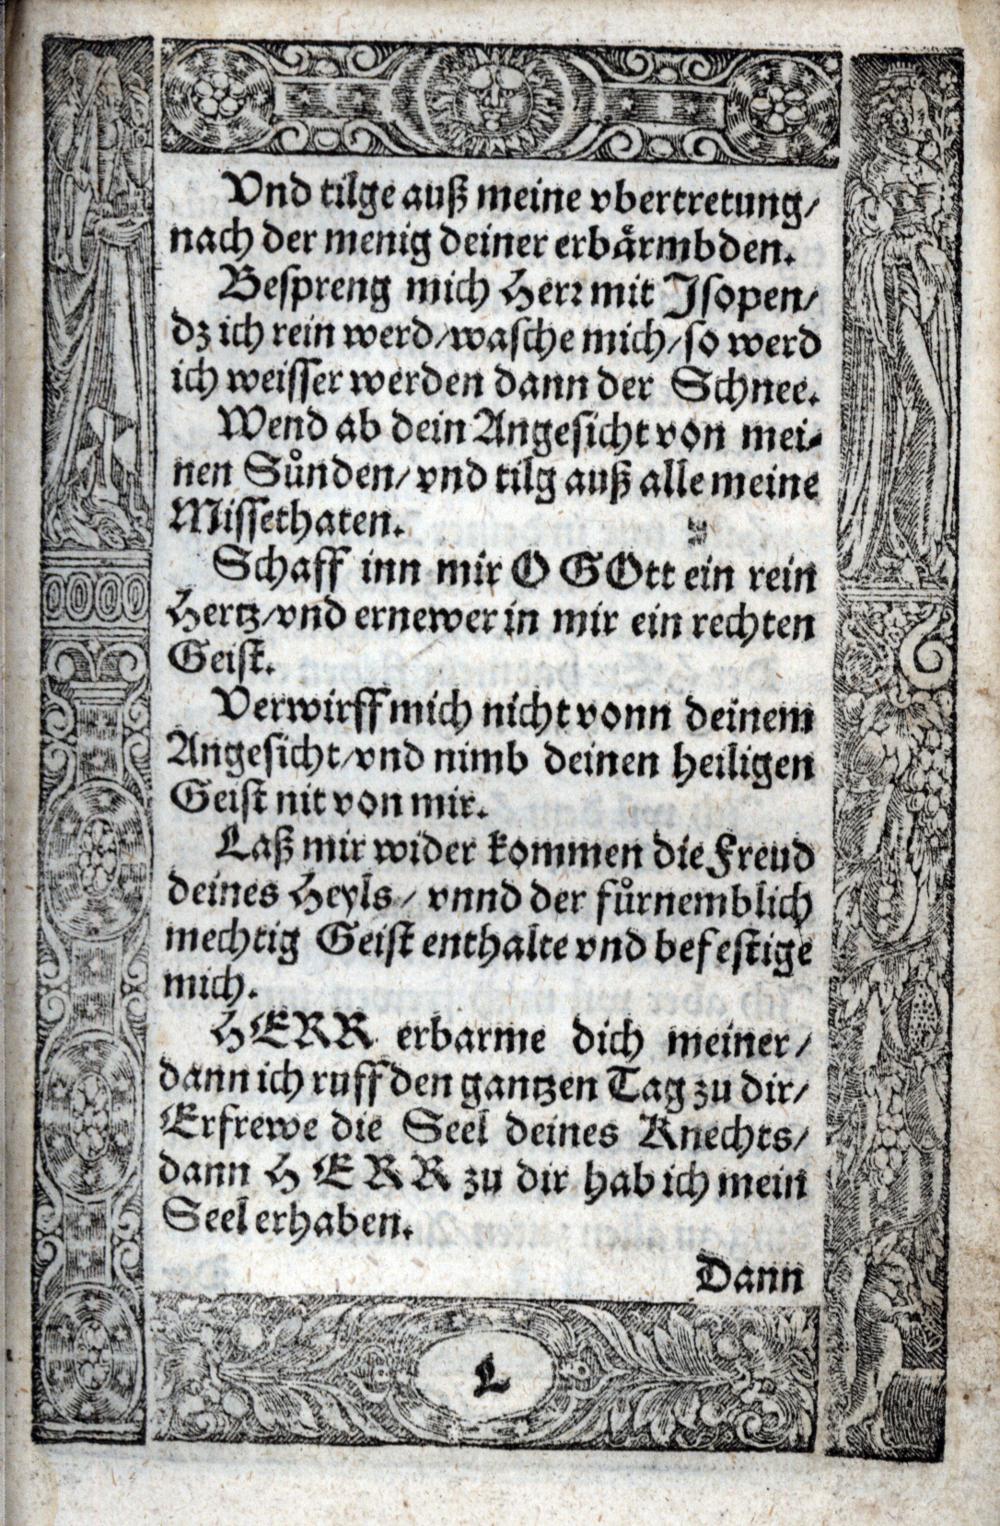 Vnd tilge auß meine vbertretung/
nach der menig deiner erbårmbden.
Bespreng mich Herꝛ mit Jsopen/
dz ich rein werd/wasche mich/so werd
ich weisser werden dann der Schnee.
Wend ab dein Angesicht von mei-
nen Sůnden/vnd tilg auß alle meine
Missethaten.
Schaff inn mir O GOtt ein rein
Hertz/vnd ernewer in mir ein rechten
Geist.
Verwirff mich nicht vonn deinem
Angesicht/vnd nimb deinen heiligen
Geist nit von mir.
Laß mir wider kommen die Freud
deines Heyls/ vnnd der fůrnemblich
mechtig Geist enthalte vnd befestige
mich.
HERR erbarme dich meiner/
dann ich ruff den gantzen Tag zu dir/
Erfrewe die Seel deines Knechts/
dann HERR zu dir hab ich mein
Seel erhaben.
Dann
L